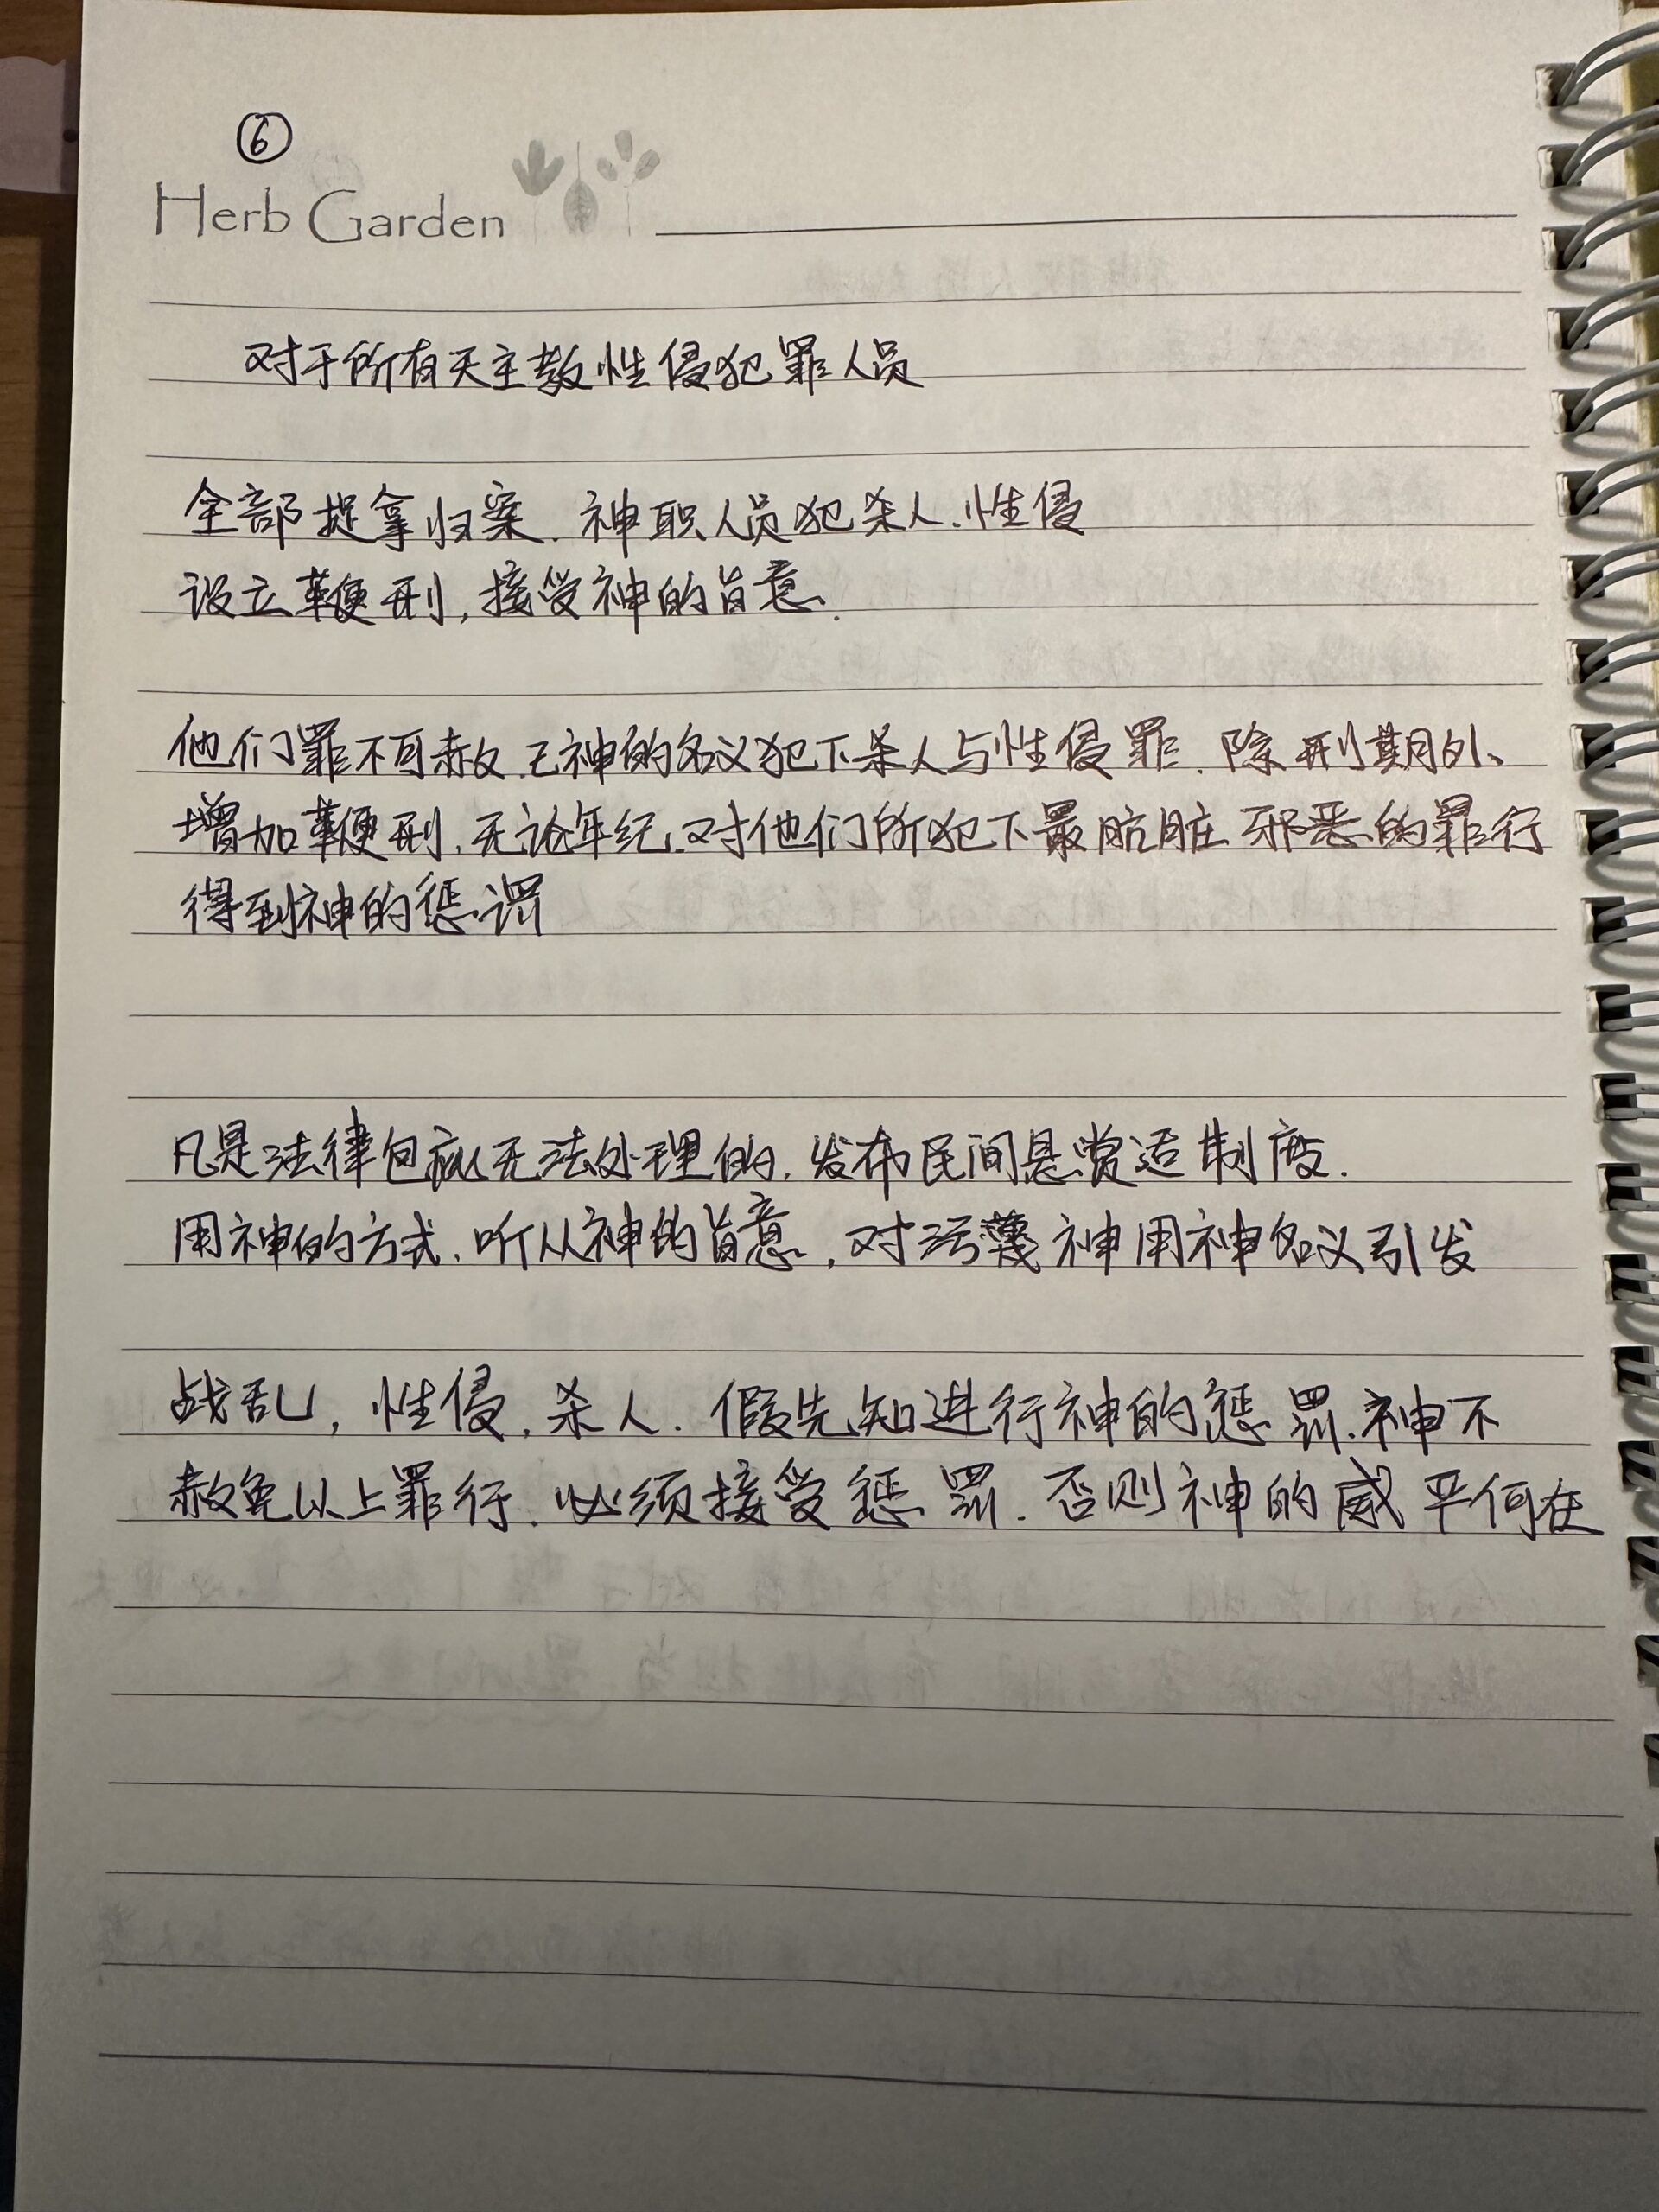 ⑥
Herb Garden
对于所有天主教性侵犯罪人员
全部捉拿归案. 神职人员犯杀人.性侵
设立鞭刑,接受神的旨意.
他们罪不可赦.已神的名义犯下杀人与性侵罪.除刑期外、
增加鞭刑.无论年纪.对他们所犯下最肮脏邪恶的罪行
得到神的惩罚
凡是法律包庇无法处理的.发布民间悬赏 制度.
用神的方式.听从神的旨意,对污蔑神用神名义引发
战乱,性侵.杀人.假先知进行神的惩罚.神不
赦免以上罪行.必须接受惩罚.否则神的威严何在